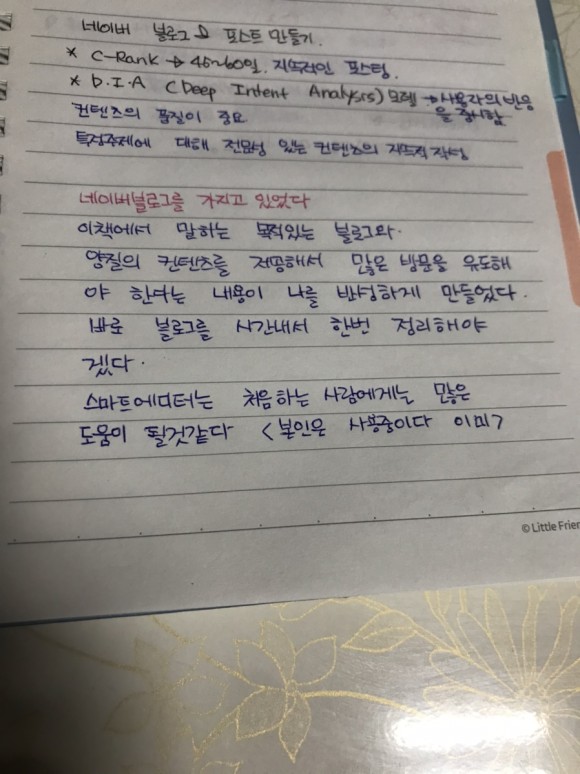 네이버 블로그 & 포스트 만들기.
* C-Rank → 45~60일. 지속적인 포스팅.
* D.I.A (Deep Intent Analysis) 모델 → 사용자의 반응
을 중시함
컨텐츠의 품질이 중요
특정주제에 대해 전문성 있는 컨텐츠의 지속적 작성
네이버블로그를 가지고 있었다
이책에서 말하는 목적있는 블로그와.
양질의 컨텐츠를 제공해서 많은 방문을 유도해
야 한다는 내용이 나를 반성하게 만들었다.
바로 블로그를 시간내서 한번 정리해야
겠다.
스마트에디터는 처음하는 사람에게는 많은
도움이 될것같다 <본인은 사용중이다 이미>
© Little Frien